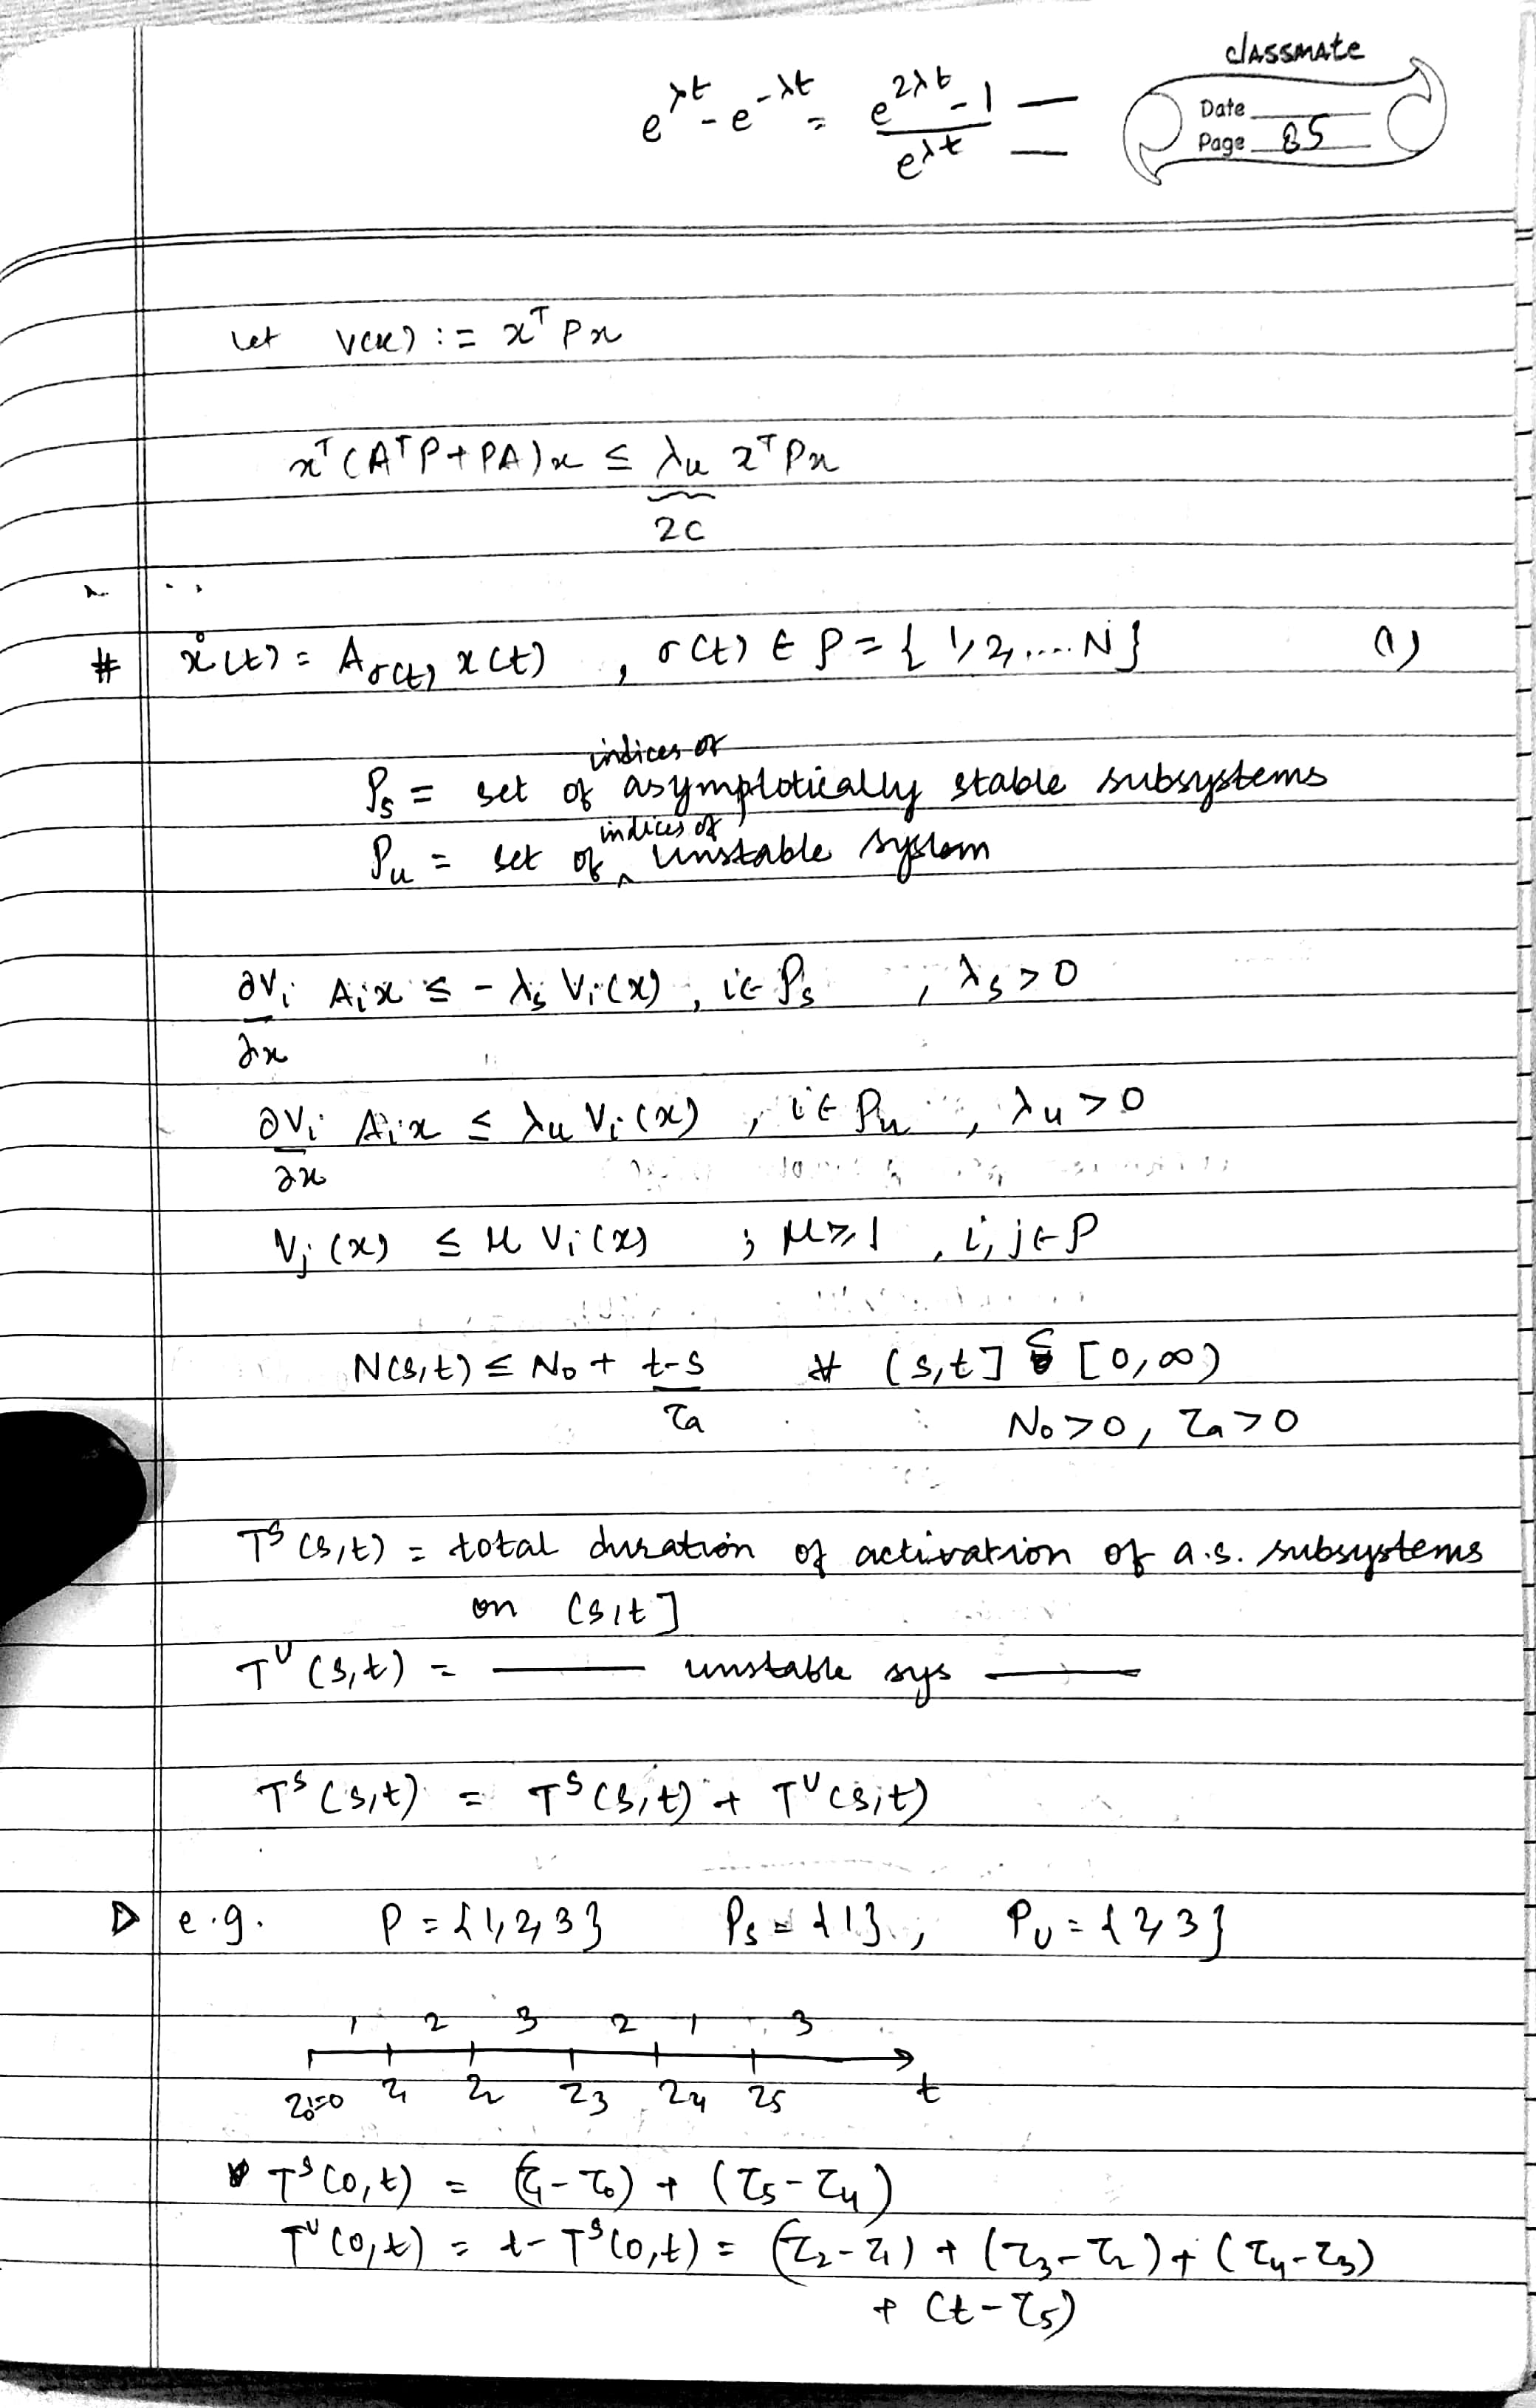 classmate
Date
Page 85
e^{λt} - e^{-λt} = \frac{e^{2λt} - 1}{e^{λt}}
Let V(x) := x^T P x
x^T (A^T P + PA) x ≤ λ_u x^T P x
2c
# ẋ(t) = A_{σ(t)} x(t) , σ(t) ∈ P = { 1, 2, .... N } (1)
indices of
P_s = set of asymplotically stable subsystems
indices of
P_u = set of ^ unstable system
\frac{∂V_i}{∂x} A_i x ≤ - λ_s V_i(x) , i ∈ P_s , λ_s > 0
\frac{∂V_i}{∂x} A_i x ≤ λ_u V_i(x) , i ∈ P_u , λ_u > 0
V_j(x) ≤ μ V_i(x) ; μ ≥ 1 , i, j ∈ P
N(s,t) ≤ N_0 + \frac{t-s}{τ_a} ∀ (s,t] ⊆ [0,∞)
N_0 > 0 , τ_a > 0
T^S (s,t) = total duration of activation of a.s. subsystems
on (s,t]
T^U (s,t) = —— unstable sys ——
T^S (s,t) = T^S (s,t) + T^U (s,t)
▷ e.g. P = {1,2,3} P_s = {1} , P_U = {2,3}
1 2 3 2 1 3
τ_0=0 τ_1 τ_2 τ_3 τ_4 τ_5 t
T^S (0,t) = (τ_1 - τ_0) + (τ_5 - τ_4)
T^U (0,t) = t - T^S (0,t) = (τ_2 - τ_1) + (τ_3 - τ_2) + (τ_4 - τ_3)
+ (t - τ_5)